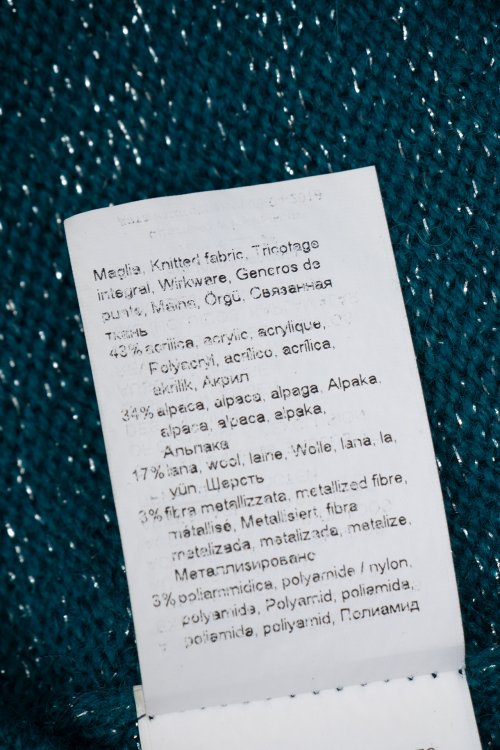 Maglia, Knitted fabric, Tricotage
integral, Wirkware, Generos de
punto, Maine, Örgü, Связанная
ткань
43% acrilica, acrylic, acrylique,
Polyacryl, acrílico, acrílica,
akrilik, Акрил
34% alpaca, alpaca, alpaga, Alpaka,
alpaca, alpaca, alpaka,
Альпака
17% lana, wool, laine, Wolle, lana, la,
yün, Шерсть
3% fibra metallizzata, metallized fibre,
métallisé, Metallisiert, fibra
metalizada, metalizada, metalize,
Металлизированс
3% poliammidica, polyamide / nylon,
polyamide, Polyamid, poliamida,
poliamida, poliyamid, Полиамид